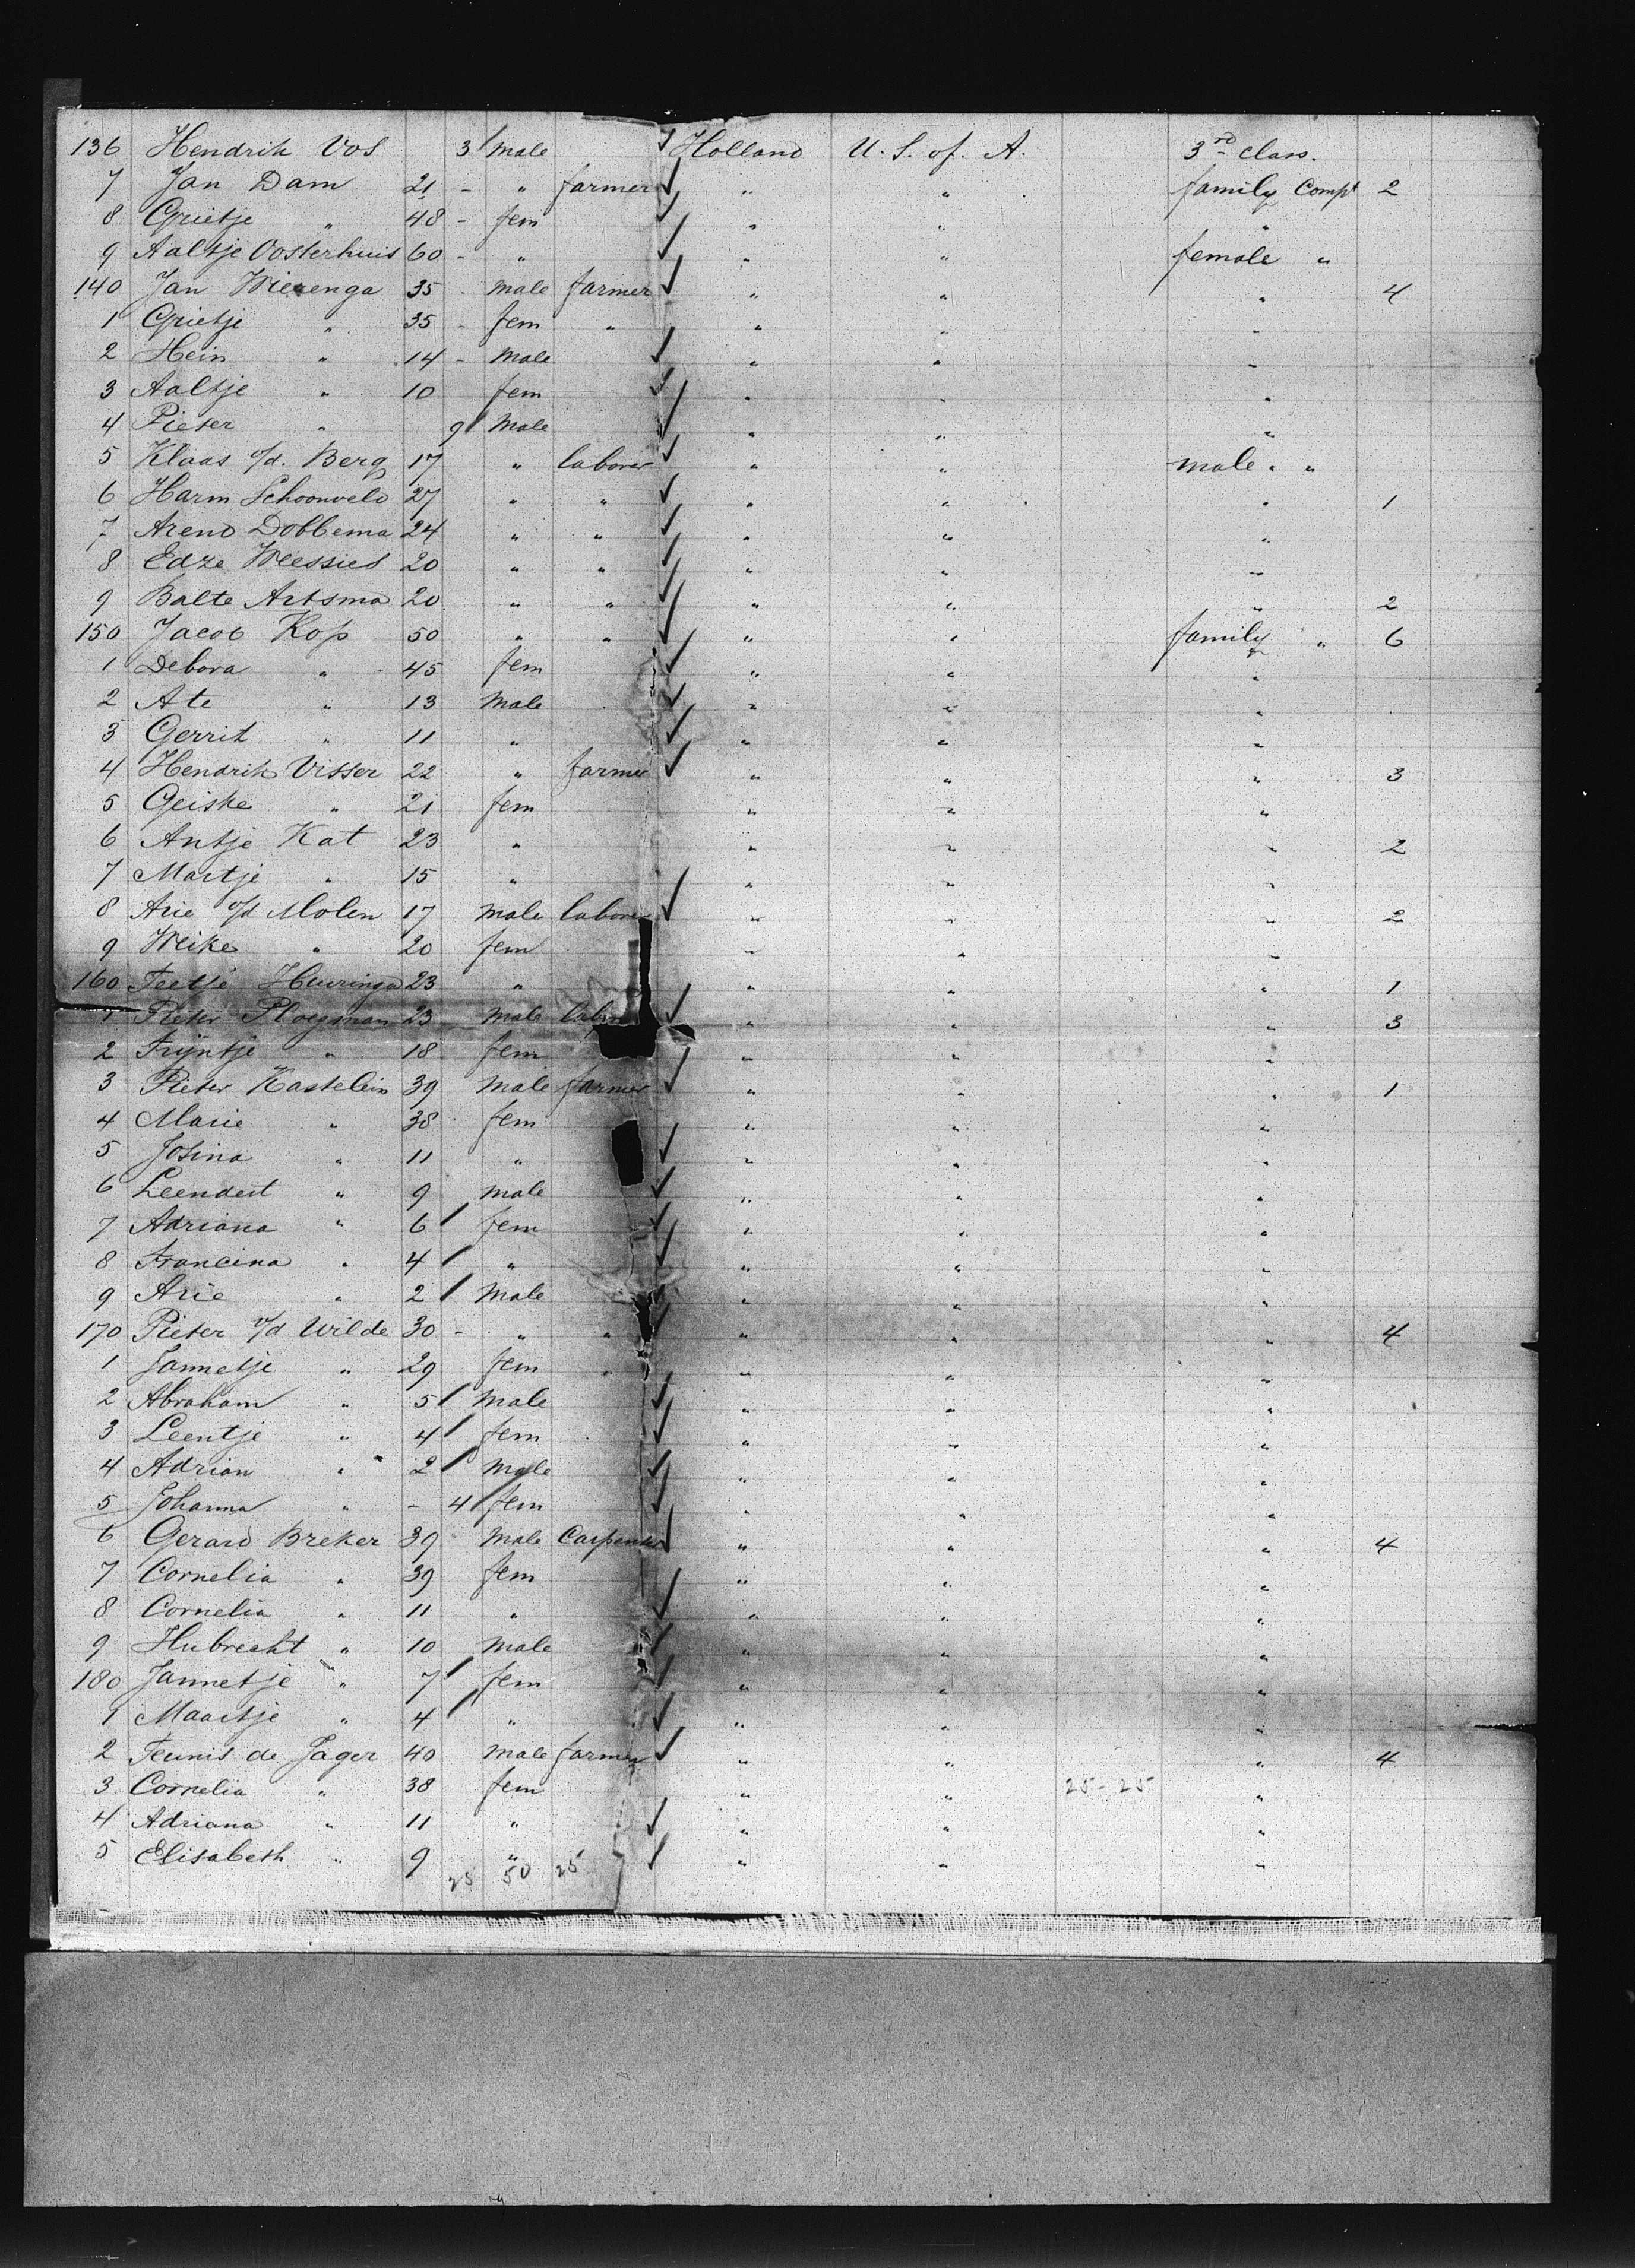 136 Hendrik Vos 3 male Holland U. S. of. A. 3rd class.
7 Jan Dam 21 - " farmer " " family Compt 2
8 Grietje " 48 - fem " " "
9 Aaltje Oosterhuis 60 - " " " female "
140 Jan Wierenga 35 - male farmer " " " 4
1 Grietje " 35 - fem " " " "
2 Hein " 14 - male " " "
3 Aaltje " 10 fem " " "
4 Pieter " 9 male " " "
5 Klaas v/d. Berg 17 " laborer " " male "
6 Harm Schoonveld 27 " " " " " 1
7 Arend Dobbema 24 " " " " "
8 Edze Wessies 20 " " " " "
9 Balte Artsma 20 " " " " " 2
150 Jacob Kop 50 " " " " family " 6
1 Debora " 45 fem " " "
2 Ate " 13 male " " "
3 Gerrit " 11 " " " "
4 Hendrik Visser 22 " farmer " " " 3
5 Geiske " 21 fem " " "
6 Antje Kat 23 " " " " 2
7 Martje " 15 " " " "
8 Arie v/d Molen 17 male laborer " " " 2
9 Weike " 20 fem " " "
160 Teetse Heuringa 23 " " " " 1
1 Pieter Ploegman 23 male " " " 3
2 Trijntje " 18 fem " " "
3 Pieter Kastelein 39 male farmer " " " 1
4 Marie " 38 fem " " "
5 Josina " 11 " " " "
6 Leendert " 9 male " " "
7 Adriana " 6 fem " " "
8 Francina " 4 " " " "
9 Arie " 2 male " " "
170 Pieter v/d Wilde 30 - " " " " " 4
1 Jannetje " 29 fem " " " "
2 Abraham " 5 male " " "
3 Leentje " 4 fem " " "
4 Adrian " 2 male " " "
5 Johanna " - 4 fem " " "
6 Gerard Breker 39 male Carpenter " " " 4
7 Cornelia " 39 fem " " "
8 Cornelia " 11 " " " "
9 Hubrecht " 10 male " " "
180 Jannetje " 7 fem " " "
1 Maartje " 4 " " " "
2 Teunis de Jager 40 male farmer " " " 4
3 Cornelia " 38 fem " " 25-25 "
4 Adriana " 11 " " " "
5 Elisabeth " 9 " " " "
25 50 25